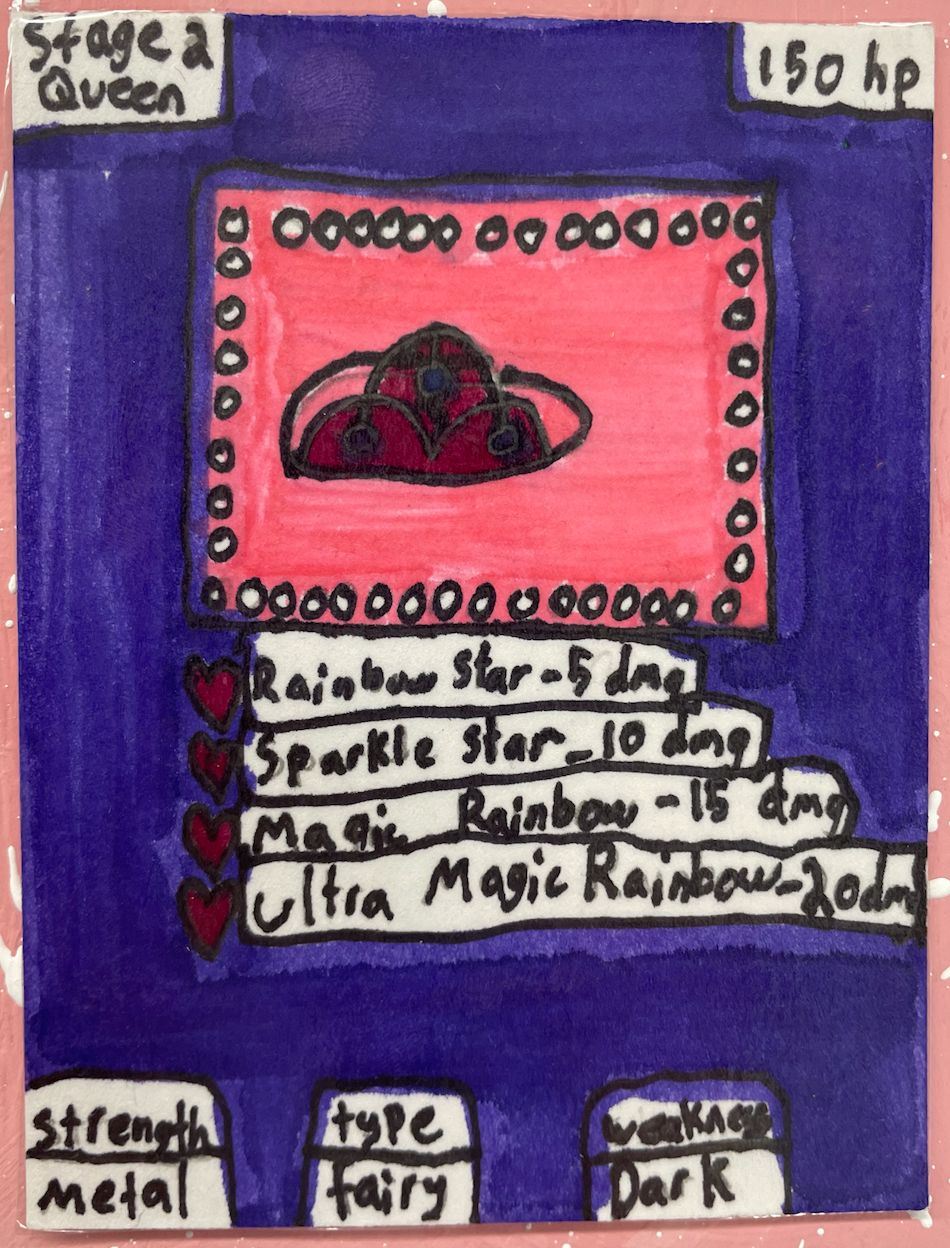 Stage 2
Queen
150 hp
Rainbow Star - 5 dmg
Sparkle Star - 10 dmg
Magic Rainbow - 15 dmg
Ultra Magic Rainbow - 20 dmg
strength
metal
type
fairy
weakness
Dark